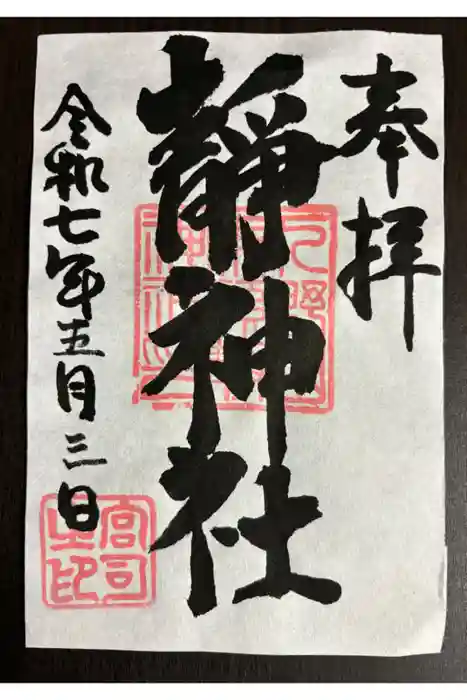 奉拝
靜神社
令和七年五月三日
宮司之印